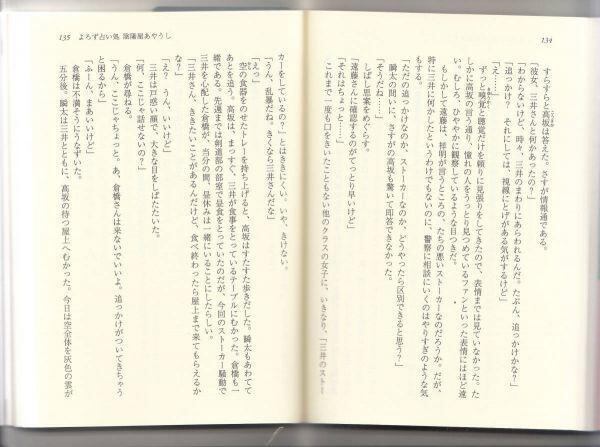 134
すらすらと高坂は答えた。さすが情報通である。
「彼女、三井さんと何かあったの？」
「わからないけど、時々、三井のまわりにあらわれるんだ。たぶん、追っかけかな」
「追っかけ？　それにしては、視線にとげがある気がするけど」
「え……」
ずっと嗅覚と聴覚だけを頼りに見張りをしてきたので、表情までは見ていなかった。た
しかに高坂の言う通り、憧れの人をうっとり見つめているファンといった表情にはほど遠
い。むしろ、ひややかに観察しているような目つきだ。
もしかして遠藤は、祥明が言うところの、たちの悪いストーカーなのだろうか。だが、
特に三井に何かしたというわけでもないのに、警察に相談にいくのはやりすぎのような気
がする。
「ただの追っかけなのか、ストーカーなのか、どうやったら区別できると思う？」
瞬太の問いに、さすがの高坂も驚いて即答できなかった。
「そうだな……」
しばし思案をめぐらす。
「遠藤さんに確認するのがてっとり早いけど」
「それはちょっと……」
これまで一度も口をきいたこともない他のクラスの女子に、いきなり、「三井のストー
135　よろず占い処 陰陽屋あやうし
カーをしているの？」とはききにくい。いや、きけない。
「うん、乱暴だね。きくなら三井さんだな」
「えっ」
空の食器をのせたトレーを持ち上げると、高坂はすたすた歩きだした。瞬太もあわてて
あとを追う。高坂は、まっすぐ、三井が食事をとっているテーブルにむかった。倉橋も一
緒である。先週までは剣道部の部室で昼食をとっていたのだが、今回のストーカー騒動で
三井を心配した倉橋が、当分の間、昼休みは一緒にいることにしたらしい。
「三井さん、ききたいことがあるんだけど、食べ終わったら屋上まで来てもらえるか
な？」
「え？　うん、いいけど」
三井は戸惑い顔で、大きな目をしばたたいた。
「何、ここじゃ話せないの？」
倉橋が尋ねる。
「うん、ここじゃちょっと。あ、倉橋さんは来ないでいいよ。追っかけがついてきちゃう
と困るから」
「ふーん、まあいいけど」
倉橋は不満そうにうなずいた。
五分後。瞬太は三井とともに、高坂の待つ屋上へむかった。今日は空全体を灰色の雲が